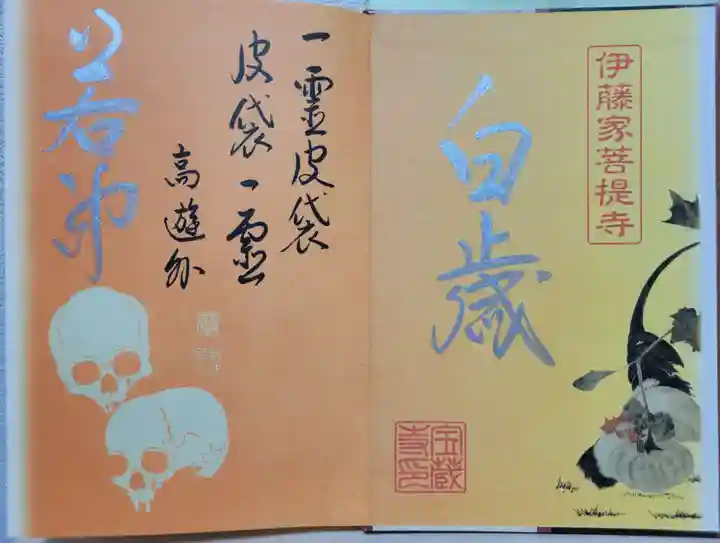 伊藤家菩提寺
白歳
宝蔵
寺印
一霊皮袋
皮袋一霊
高遊外
若冲